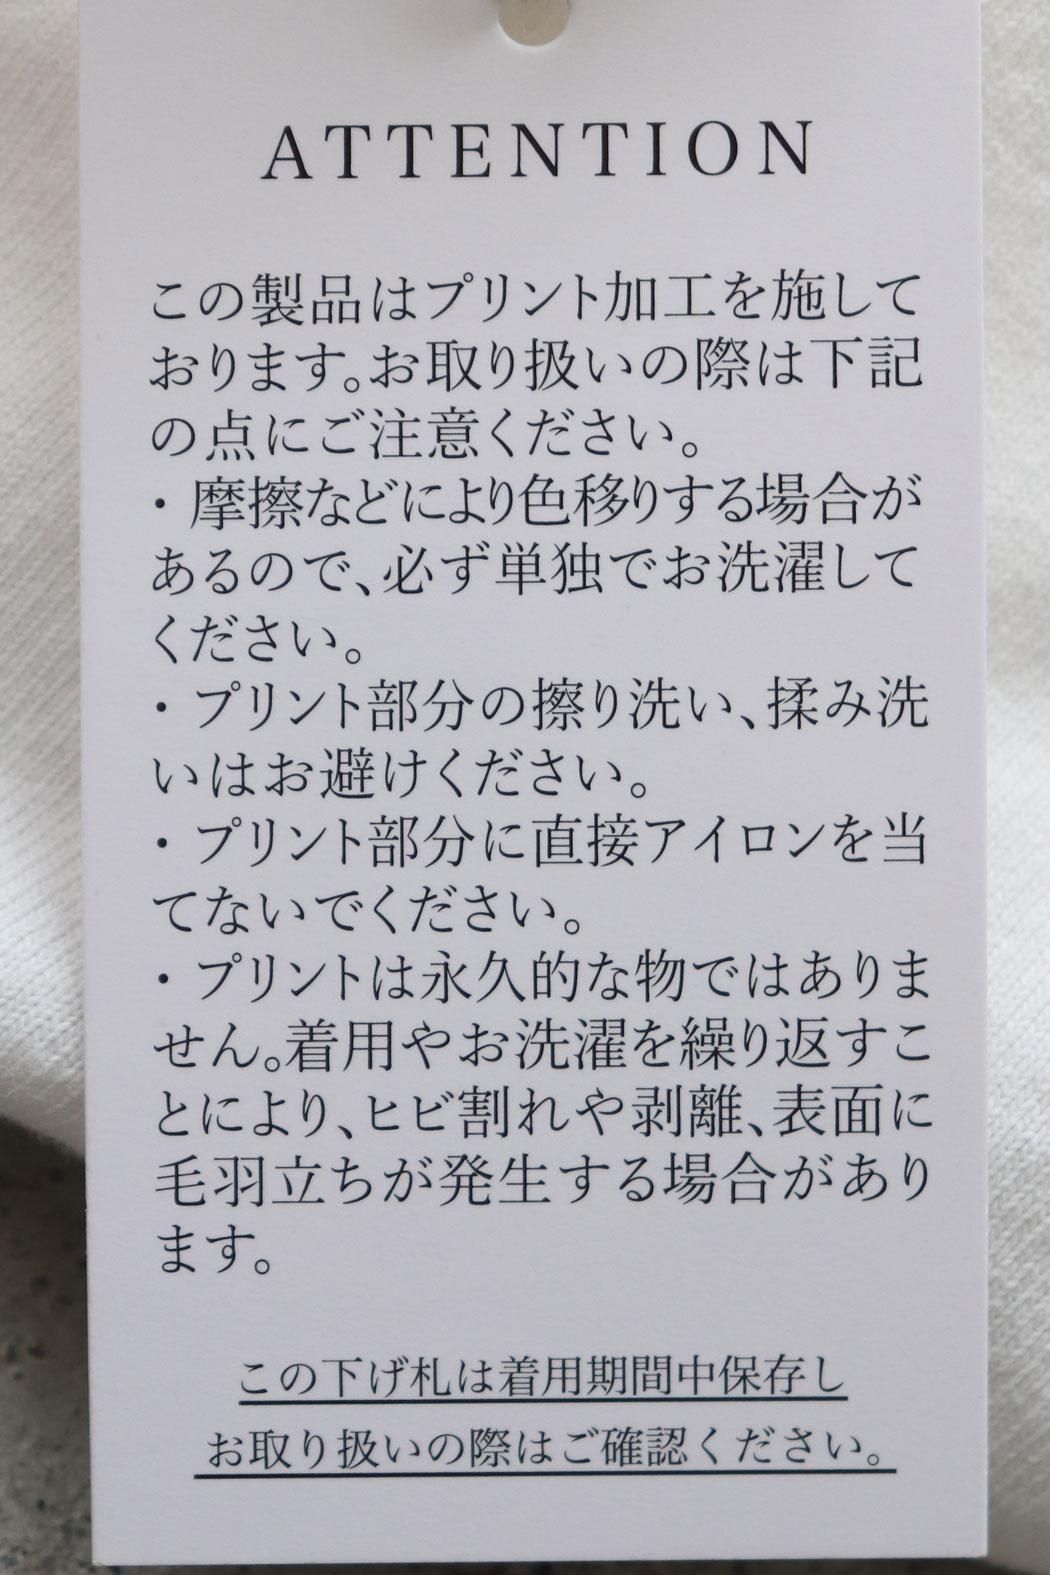 ATTENTION
この製品はプリント加工を施して
おります。お取り扱いの際は下記
の点にご注意ください。
・摩擦などにより色移りする場合が
あるので、必ず単独でお洗濯して
ください。
・プリント部分の擦り洗い、揉み洗
いはお避けください。
・プリント部分に直接アイロンを当
てないでください。
・プリントは永久的な物ではありま
せん。着用やお洗濯を繰り返すこ
とにより、ヒビ割れや剥離、表面に
毛羽立ちが発生する場合があり
ます。
この下げ札は着用期間中保存し
お取り扱いの際はご確認ください。